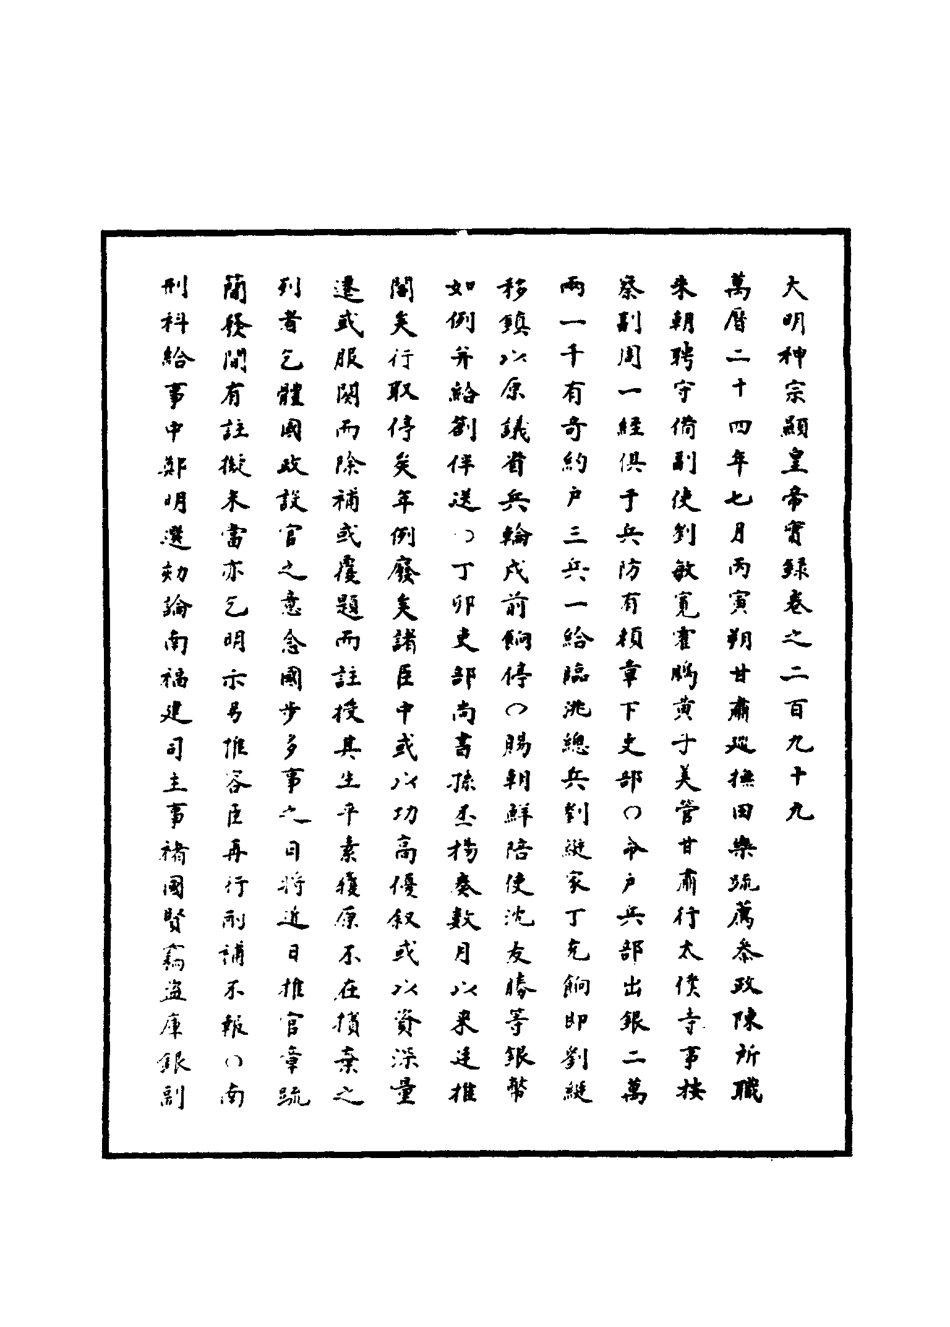 大明神宗顯皇帝實錄卷之二百九十九
萬曆二十四年七月丙寅朔甘肅廵撫田樂疏薦叅政陳所職
朱朝聘守備副使劉敏寬霍鵬黃于美管甘肅行太僕寺事按
察副周一經俱于兵防有禆章下吏部○命戶兵部出銀二萬
兩一千有奇約戶三兵一給臨洮總兵劉綎家丁充餉即劉綎
移鎮以原議省兵輪戍前餉停○賜朝鮮陪使沈友勝等銀幣
如例并給劄伴送○丁卯吏部尚書孫丕揚奏數月以來廷推
閣矣行取停矣年例廢矣諸臣中或以功高優叙或以資深量
遷或服闋而除補或覆題而註授其生平素履原不在擯棄之
列者乞體國政設官之意念國步多事之日將近日推官章疏
簡發間有註擬未當亦乞明示另推容臣再行酌議不報○南
刑科給事中鄭明選劾論南福建司主事褚國賢竊盜庫銀副